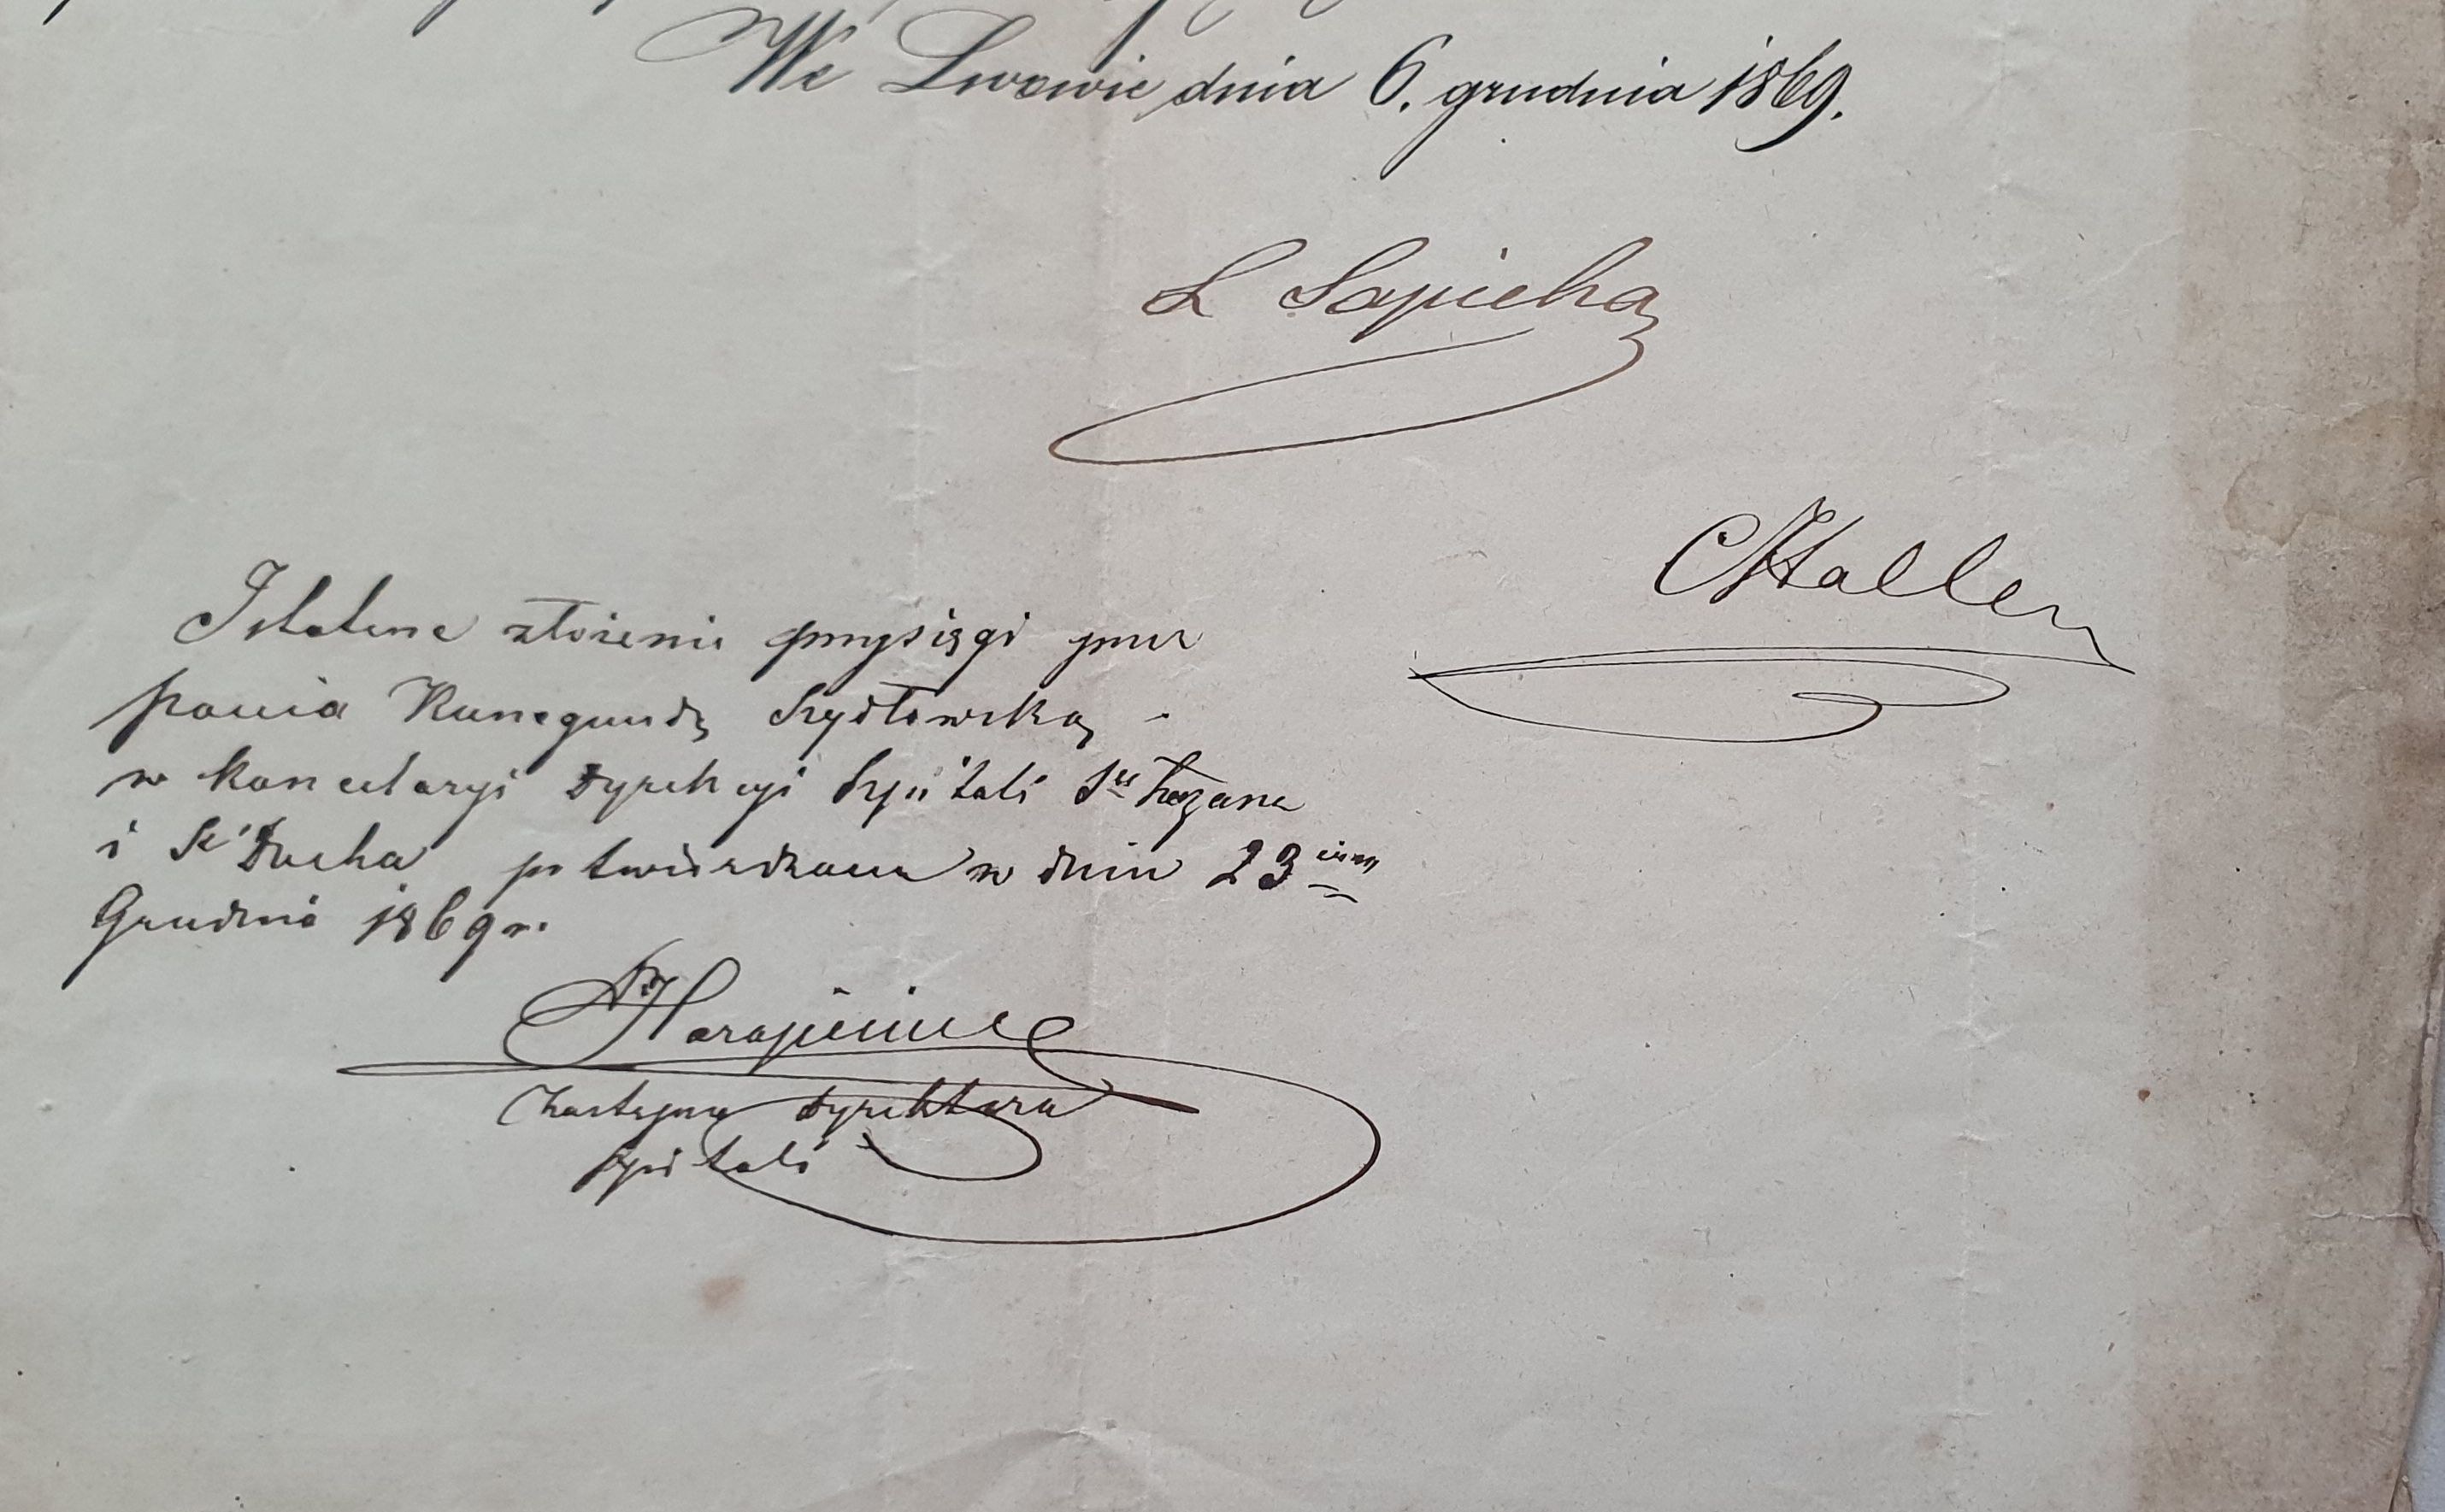 We Lwowie dnia 6. grudnia 1869.
L Sapieha
CHaller
Istotne złożenie przysięgi przez
Kunegundę Szydłowską -
w kancelaryi Dyrekcyi Szpitali Sgo Łazarza
i Sgo Ducha potwierdzam w dniu 23
Grudnia 1869 r.
Zastępca Dyrektora
Szpitali